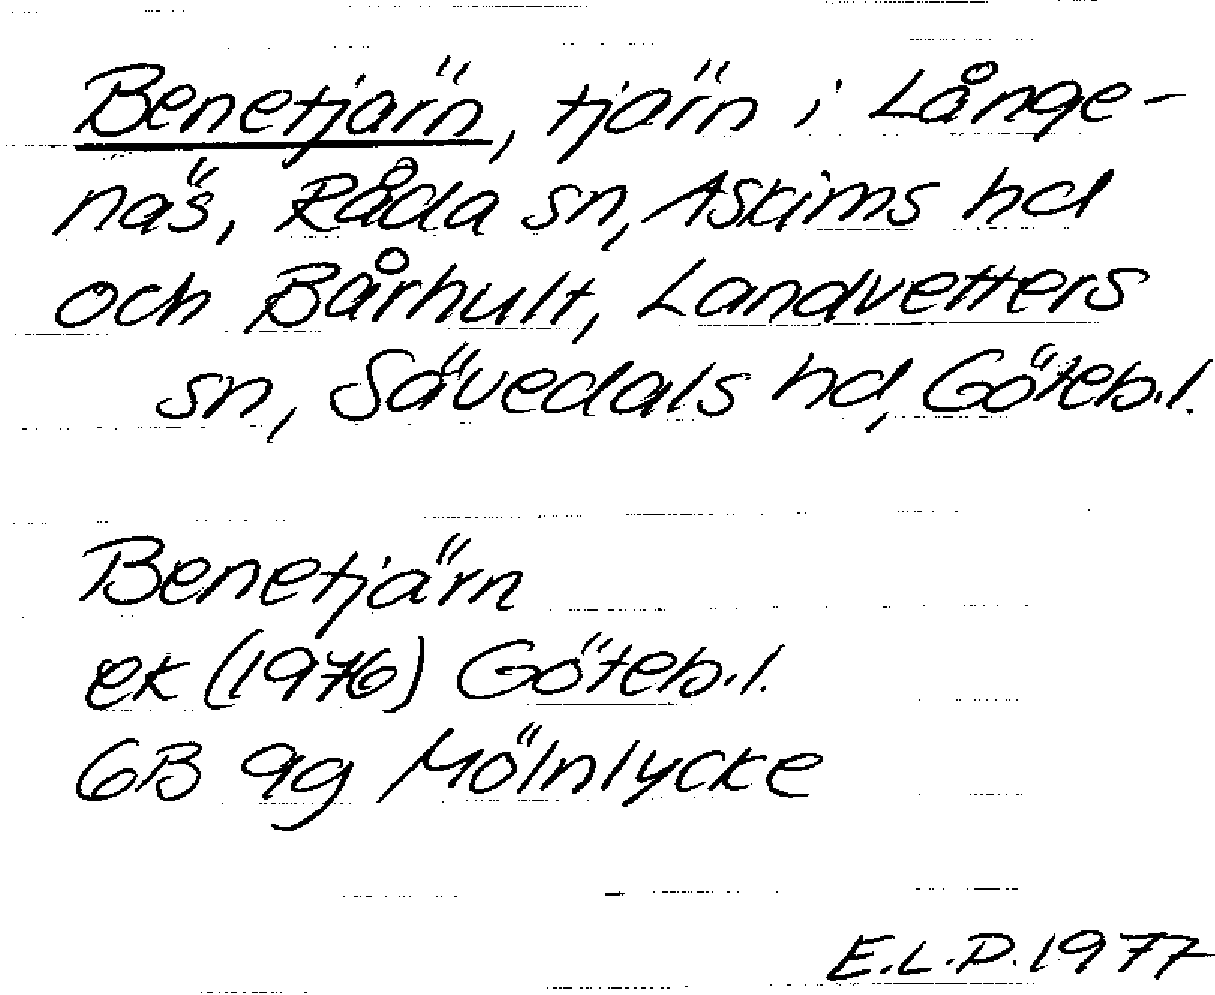 Benetjärn, tjärn i Långe-
näs, Råda sn, Askims hd
och Bårhult, Landvetters
sn, Sävedals hd, Göteb.l.
Benetjärn
ek (1976) Göteb.l.
6B 9g Mölnlycke
E.L.D. 1977